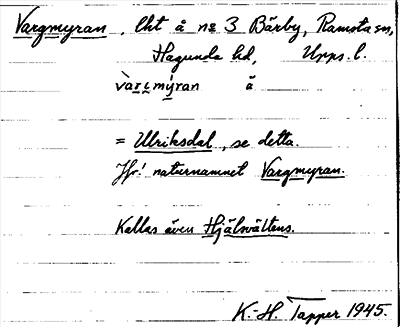 Vargmyran, lht å no 3 Bärby, Ramsta sn,
Hagunda hd, Upps. l.
varɩmýran å
= Ulriksdal, se detta.
Jfr! naturnamnet Vargmyran.
Kallas även Hjälsvältens.
K.-H. Tapper 1945.